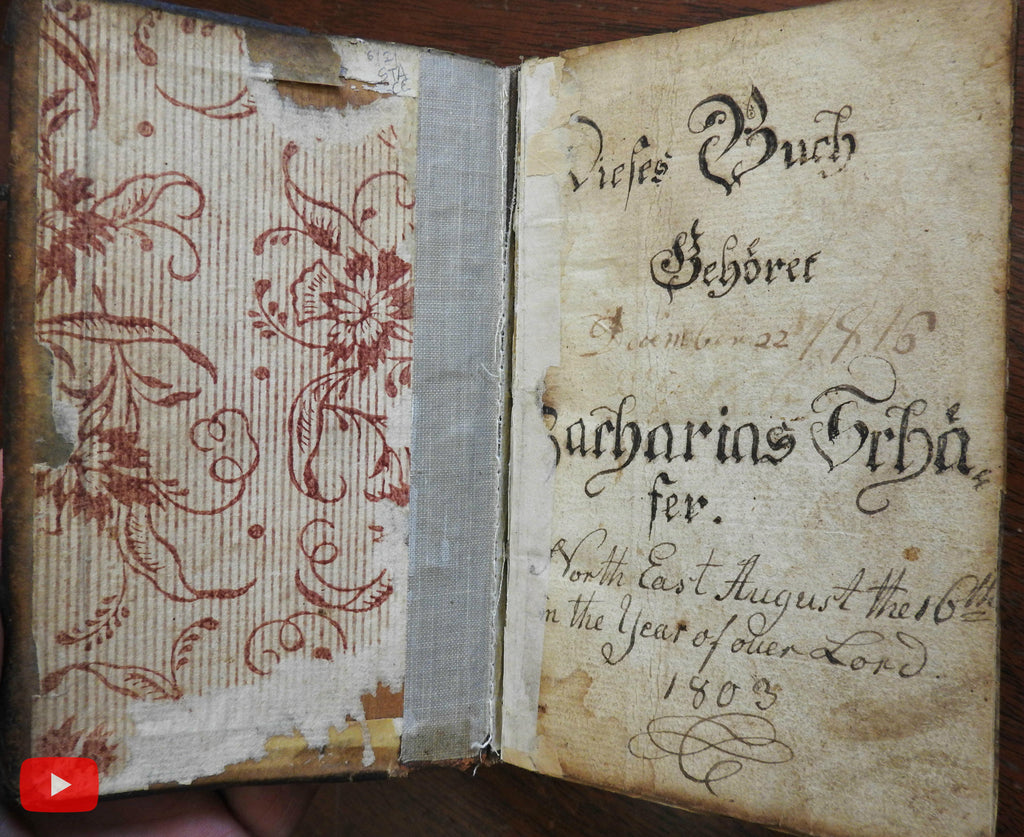 Dieses Buch
Gehöret
December 22 1816
Zacharias Schä„
fer.
North East August the 16th
in the Year of ouer Lord
1803